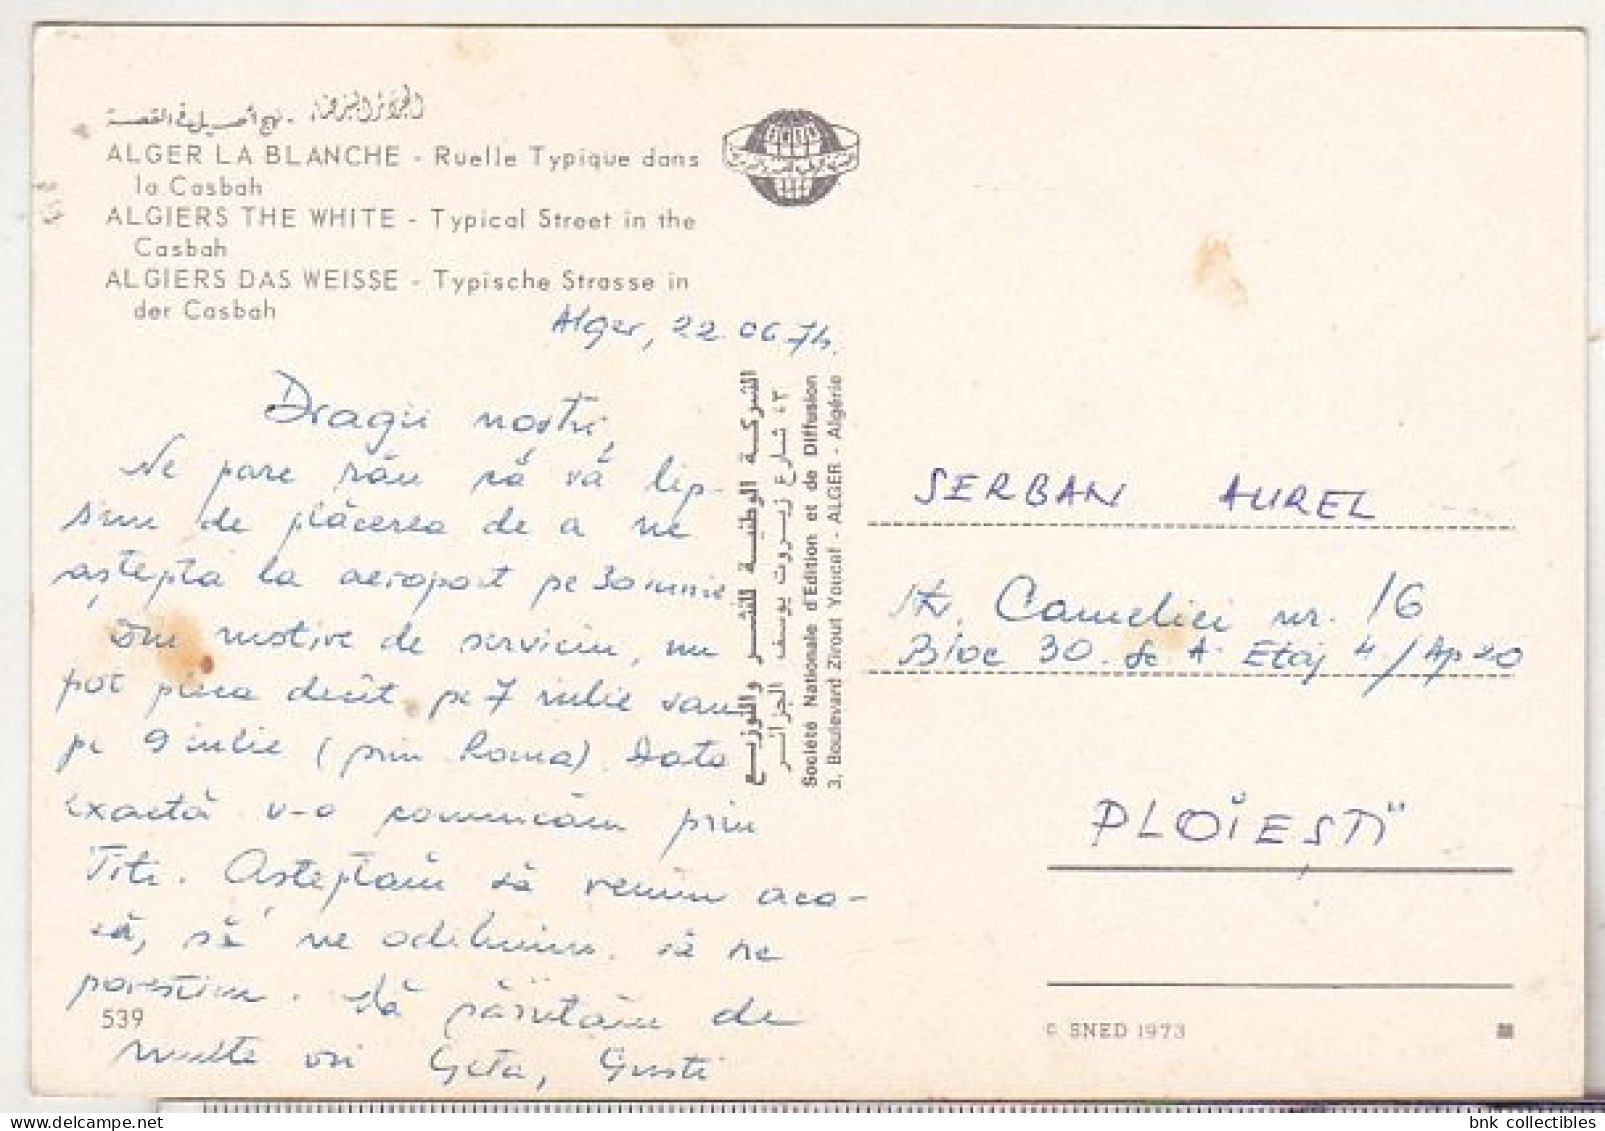 الجزائر البيضاء - نهج أصيل في القصبة
ALGER LA BLANCHE - Ruelle Typique dans
la Casbah
ALGIERS THE WHITE - Typical Street in the
Casbah
ALGIERS DAS WEISSE - Typische Strasse in
der Casbah
Alger, 22.06.74.
Dragii noștri,
Ne pare rău că vă lip-
sim de plăcerea de a ne
aștepta la aeroport pe 30 iunie
Din motive de serviciu, nu
pot pleca decît pe 7 iulie sau
pe 9 iulie (prin Roma). Data
exactă v-o comunicăm prin
Titi. Așteptăm să venim aca-
să, să ne odihnim să ne
povestim. Vă sărutăm de
multe ori Geta, Gusti
539
الشركة الوطنية للنشر والتوزيع
٣، شارع زيروت يوسف الجزائر
Société Nationale d'Edition et de Diffusion
3, Boulevard Zirout Youcef - ALGER - Algérie
SERBAN AUREL
str. Cameliei nr. 16
Bloc 30. Sc A. Etaj 4/Ap 20
PLOIEȘTI
© SNED 1973
bnk collectibles